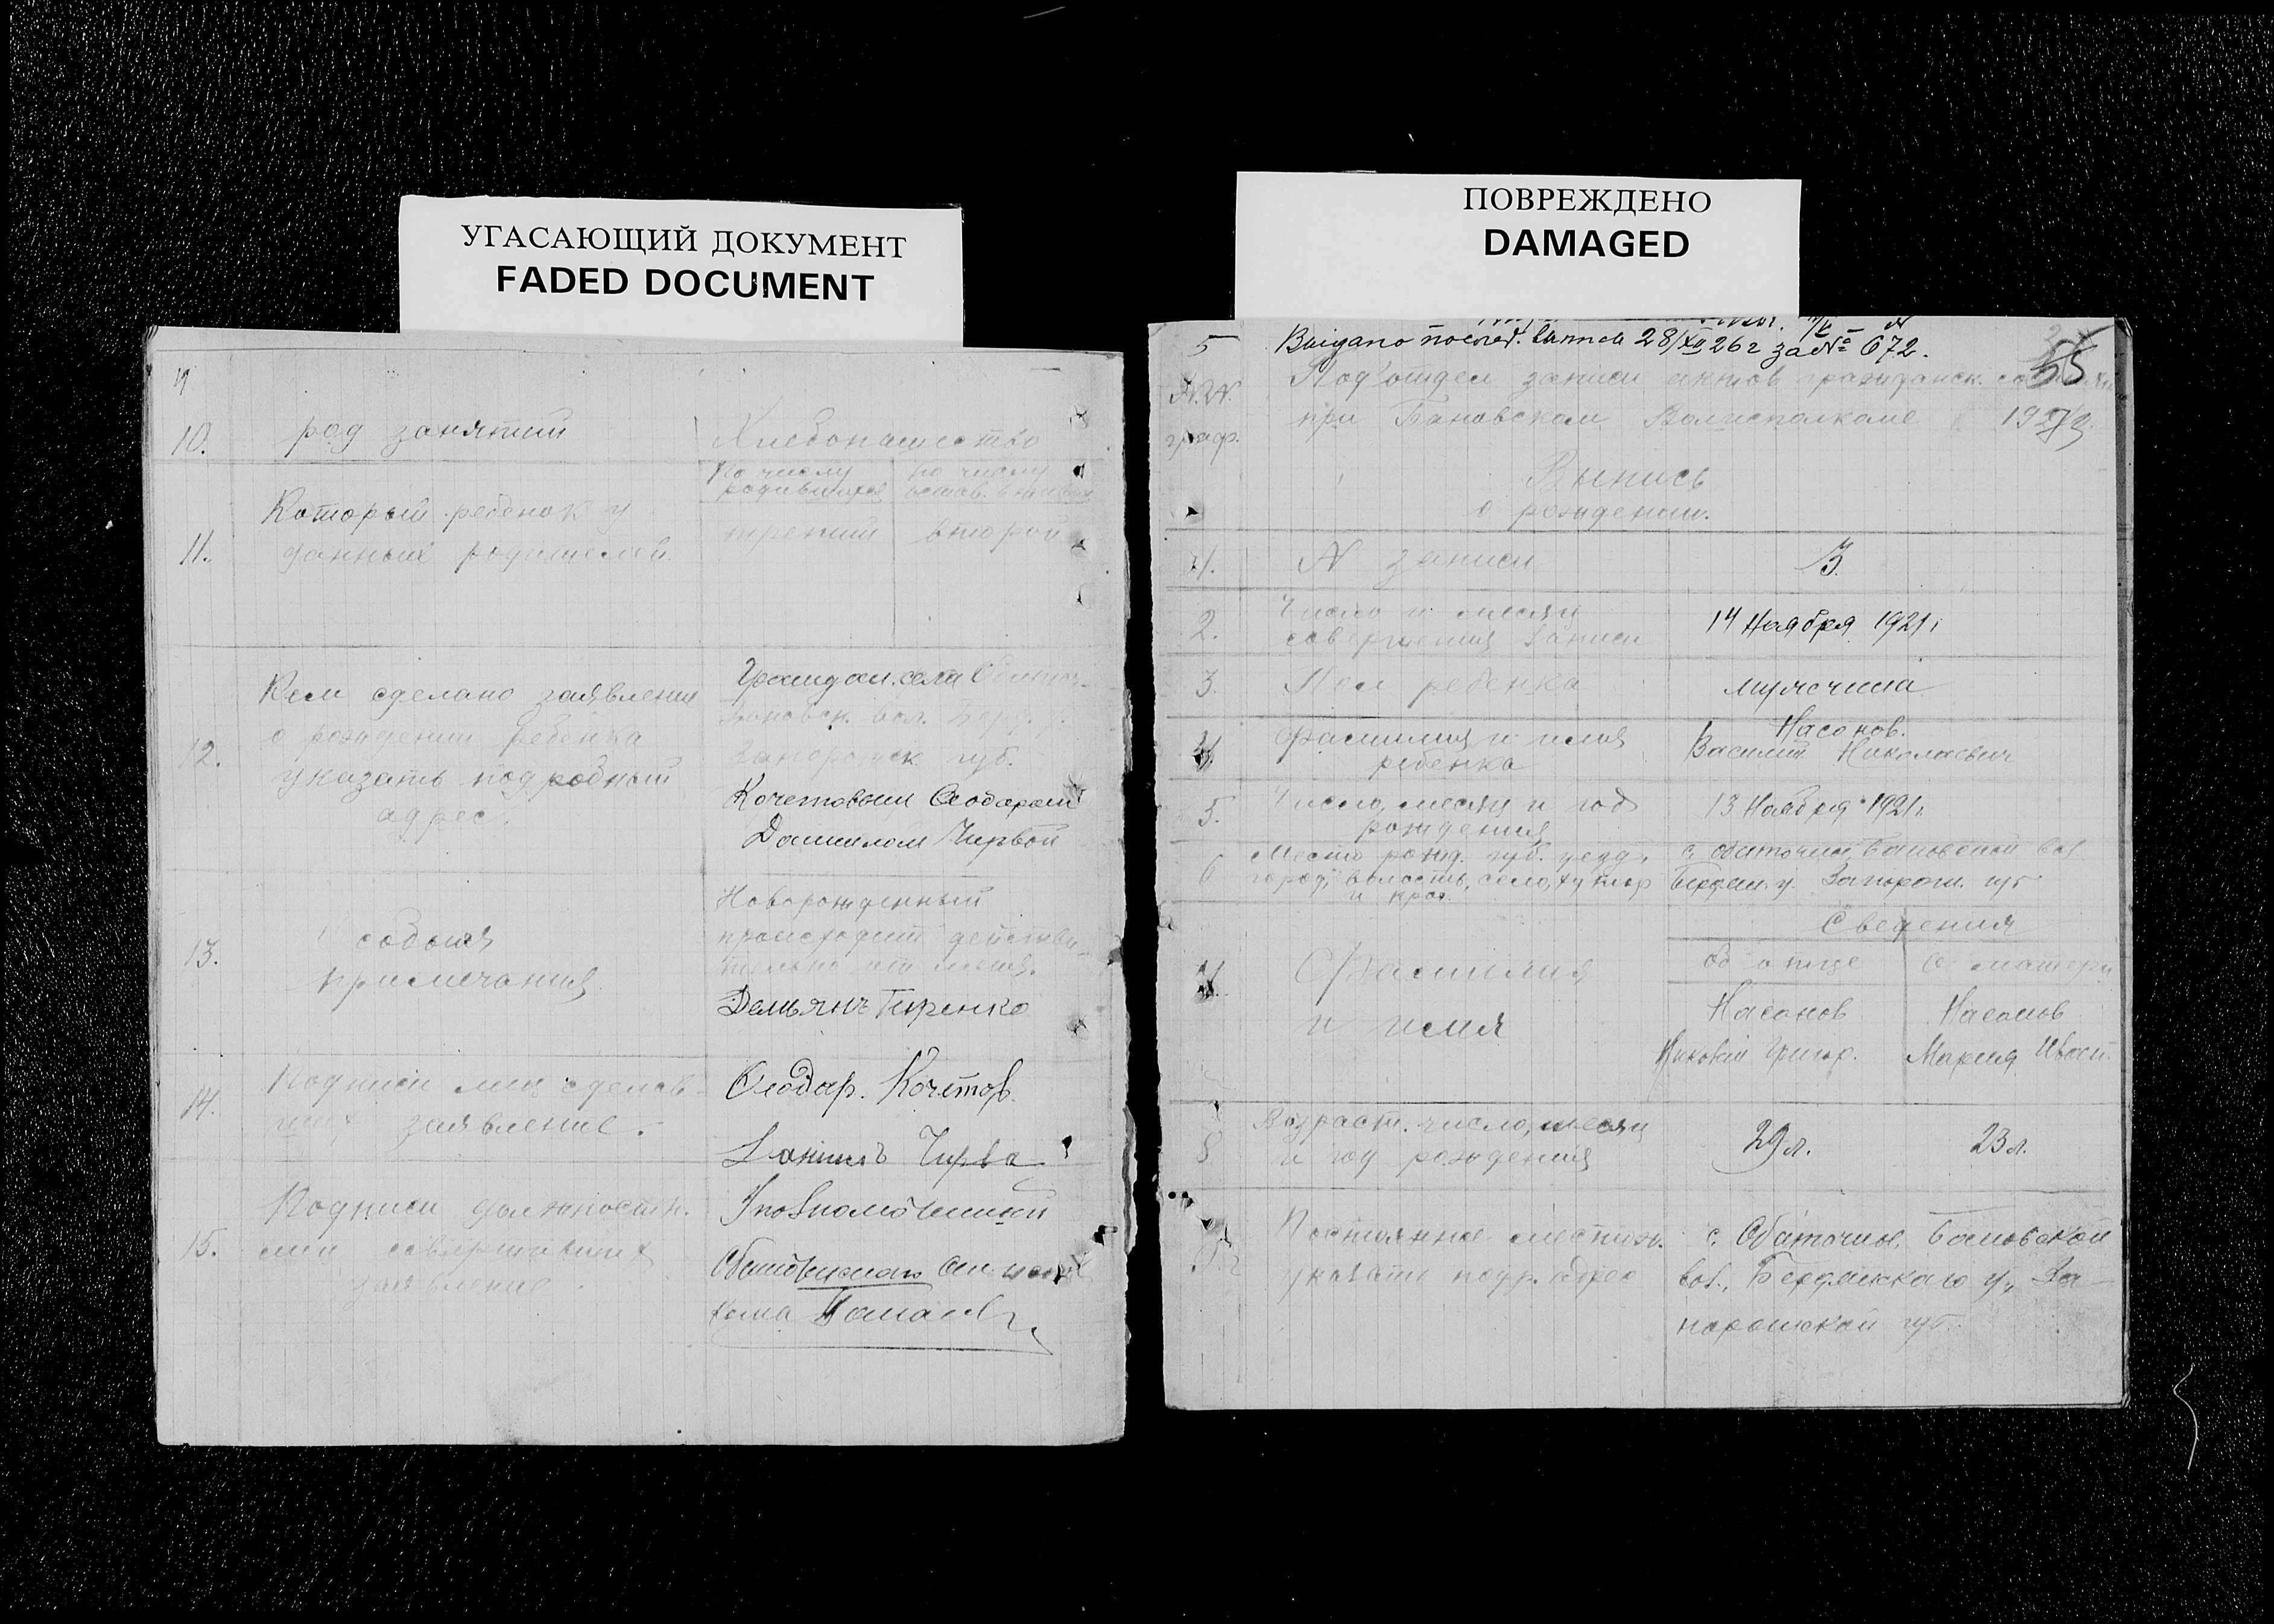 УГАСАЮЩИЙ ДОКУМЕНТ
FADED DOCUMENT
10. род занятий Хлебопашество
11. Который ребенок у данных родителей.
По числу родившихся по числу остав. в живых
третий второй
12. Кем сделано заявление
о рождении ребенка
указать подробный
адрес.
Граждан. села Обиточ.
Бановск. вол. Берд. у.
Запорожск губ.
Кочетовым Феодаром
Даниилом Чирвой
13. Особыя
примечания
Новорожденный
происходит действи-
тельно от меня.
Демьянъ Гиренко
14. Подписи лиц сделав-
ших заявление.
Феодар. Кочетов.
Данилъ Чирва
15. Подписи должностн.
лиц совершивших
заявление.
Уполномоченный
5
ПОВРЕЖДЕНО
DAMAGED
Видано послед. выпись 28/XII 26 г за № 672.
55
№.№. граф.
Под'отдел записи актов гражданск. состояния
при Бановском Волисполкоме 192
Выпись
о рождении.
1. № записи 3.
2. Число и месяц
совершения записи
14 Ноября 1921 г
3. Пол ребенка мужчина
4. Фамилия и имя
ребенка
Насонов.
Василий Николаевич
5. Число, месяц и год
рождения
13 Ноября 1921 г.
6 Место рожд. губ. уезд,
город, волость, село, хутор
с. Обиточное, Бановской вол.
Бердян. у. Запорож. губ.
Сведения
об отце о матери
7. Фамилия
и имя
Насонов Насонов
Николай Григор. Мария Иван.
8 Возраст. число, месяц
и год рождения
29 л. 23 л.
9. Постоянное местож.
указать подр. адрес
с. Обиточное, Бановской
вол., Бердянскаго у., За-
порожской губ.